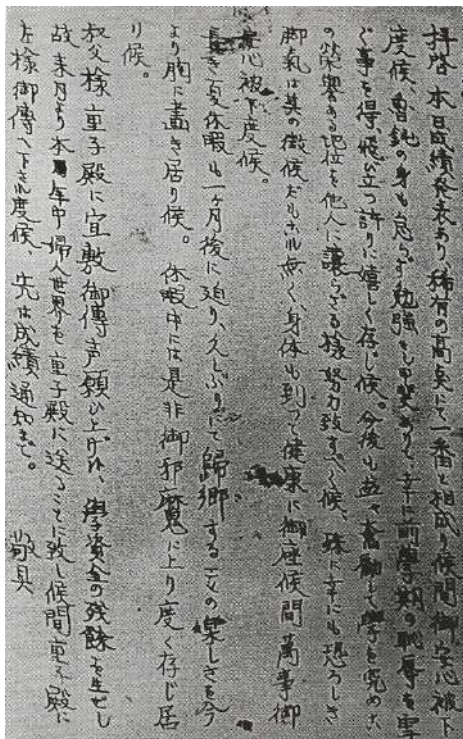 拝啓 本日成績発表あり、稀有の高点にて一番と相成り候間御安心被下
度候、魯鈍の身も怠らず勉強せし甲斐ありて、幸に前學期の恥辱を雪
ぐ事を得飛び立つ許りに嬉しく存じ候。今後も益々奮励して學を究め、
の栄誉ある地位を他人に譲らざる様努力致すべく候、殊に幸にも恐ろしき
脚気は其の徴候だも無く、身体も到つて健康に御座候間萬事御
安心被下度候。
長き夏休暇も一ヶ月後に迫り、久しぶりにて歸郷する一文の楽しさを今
より胸に畫き居り候。 休暇中には是非御邪魔に上り度く存じ居
り候。
叔父様 重子殿に宜敷御傳声願ひ上げ候、學資金の残餘を生ぜし
故来月より本年中婦人世界を重子殿に送ることに致し候間重子殿に
左様御傳へ下され度候、先は成績通知まで。 敬具